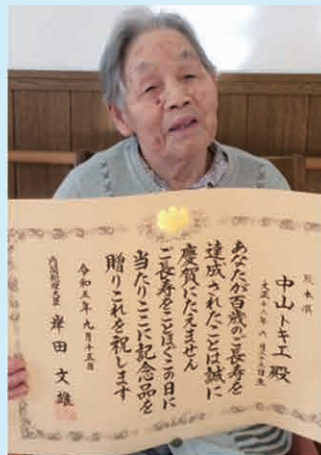 熊本県
中山トキエ 殿
大正十二年 六 月二十九日生
あなたが百歳のご長寿を
達成されたことは誠に
慶賀にたえません
ご長寿をことほぐこの日に
当たりここに記念品を
贈りこれを祝します
令和五年九月十五日
内閣総理大臣 岸田文雄